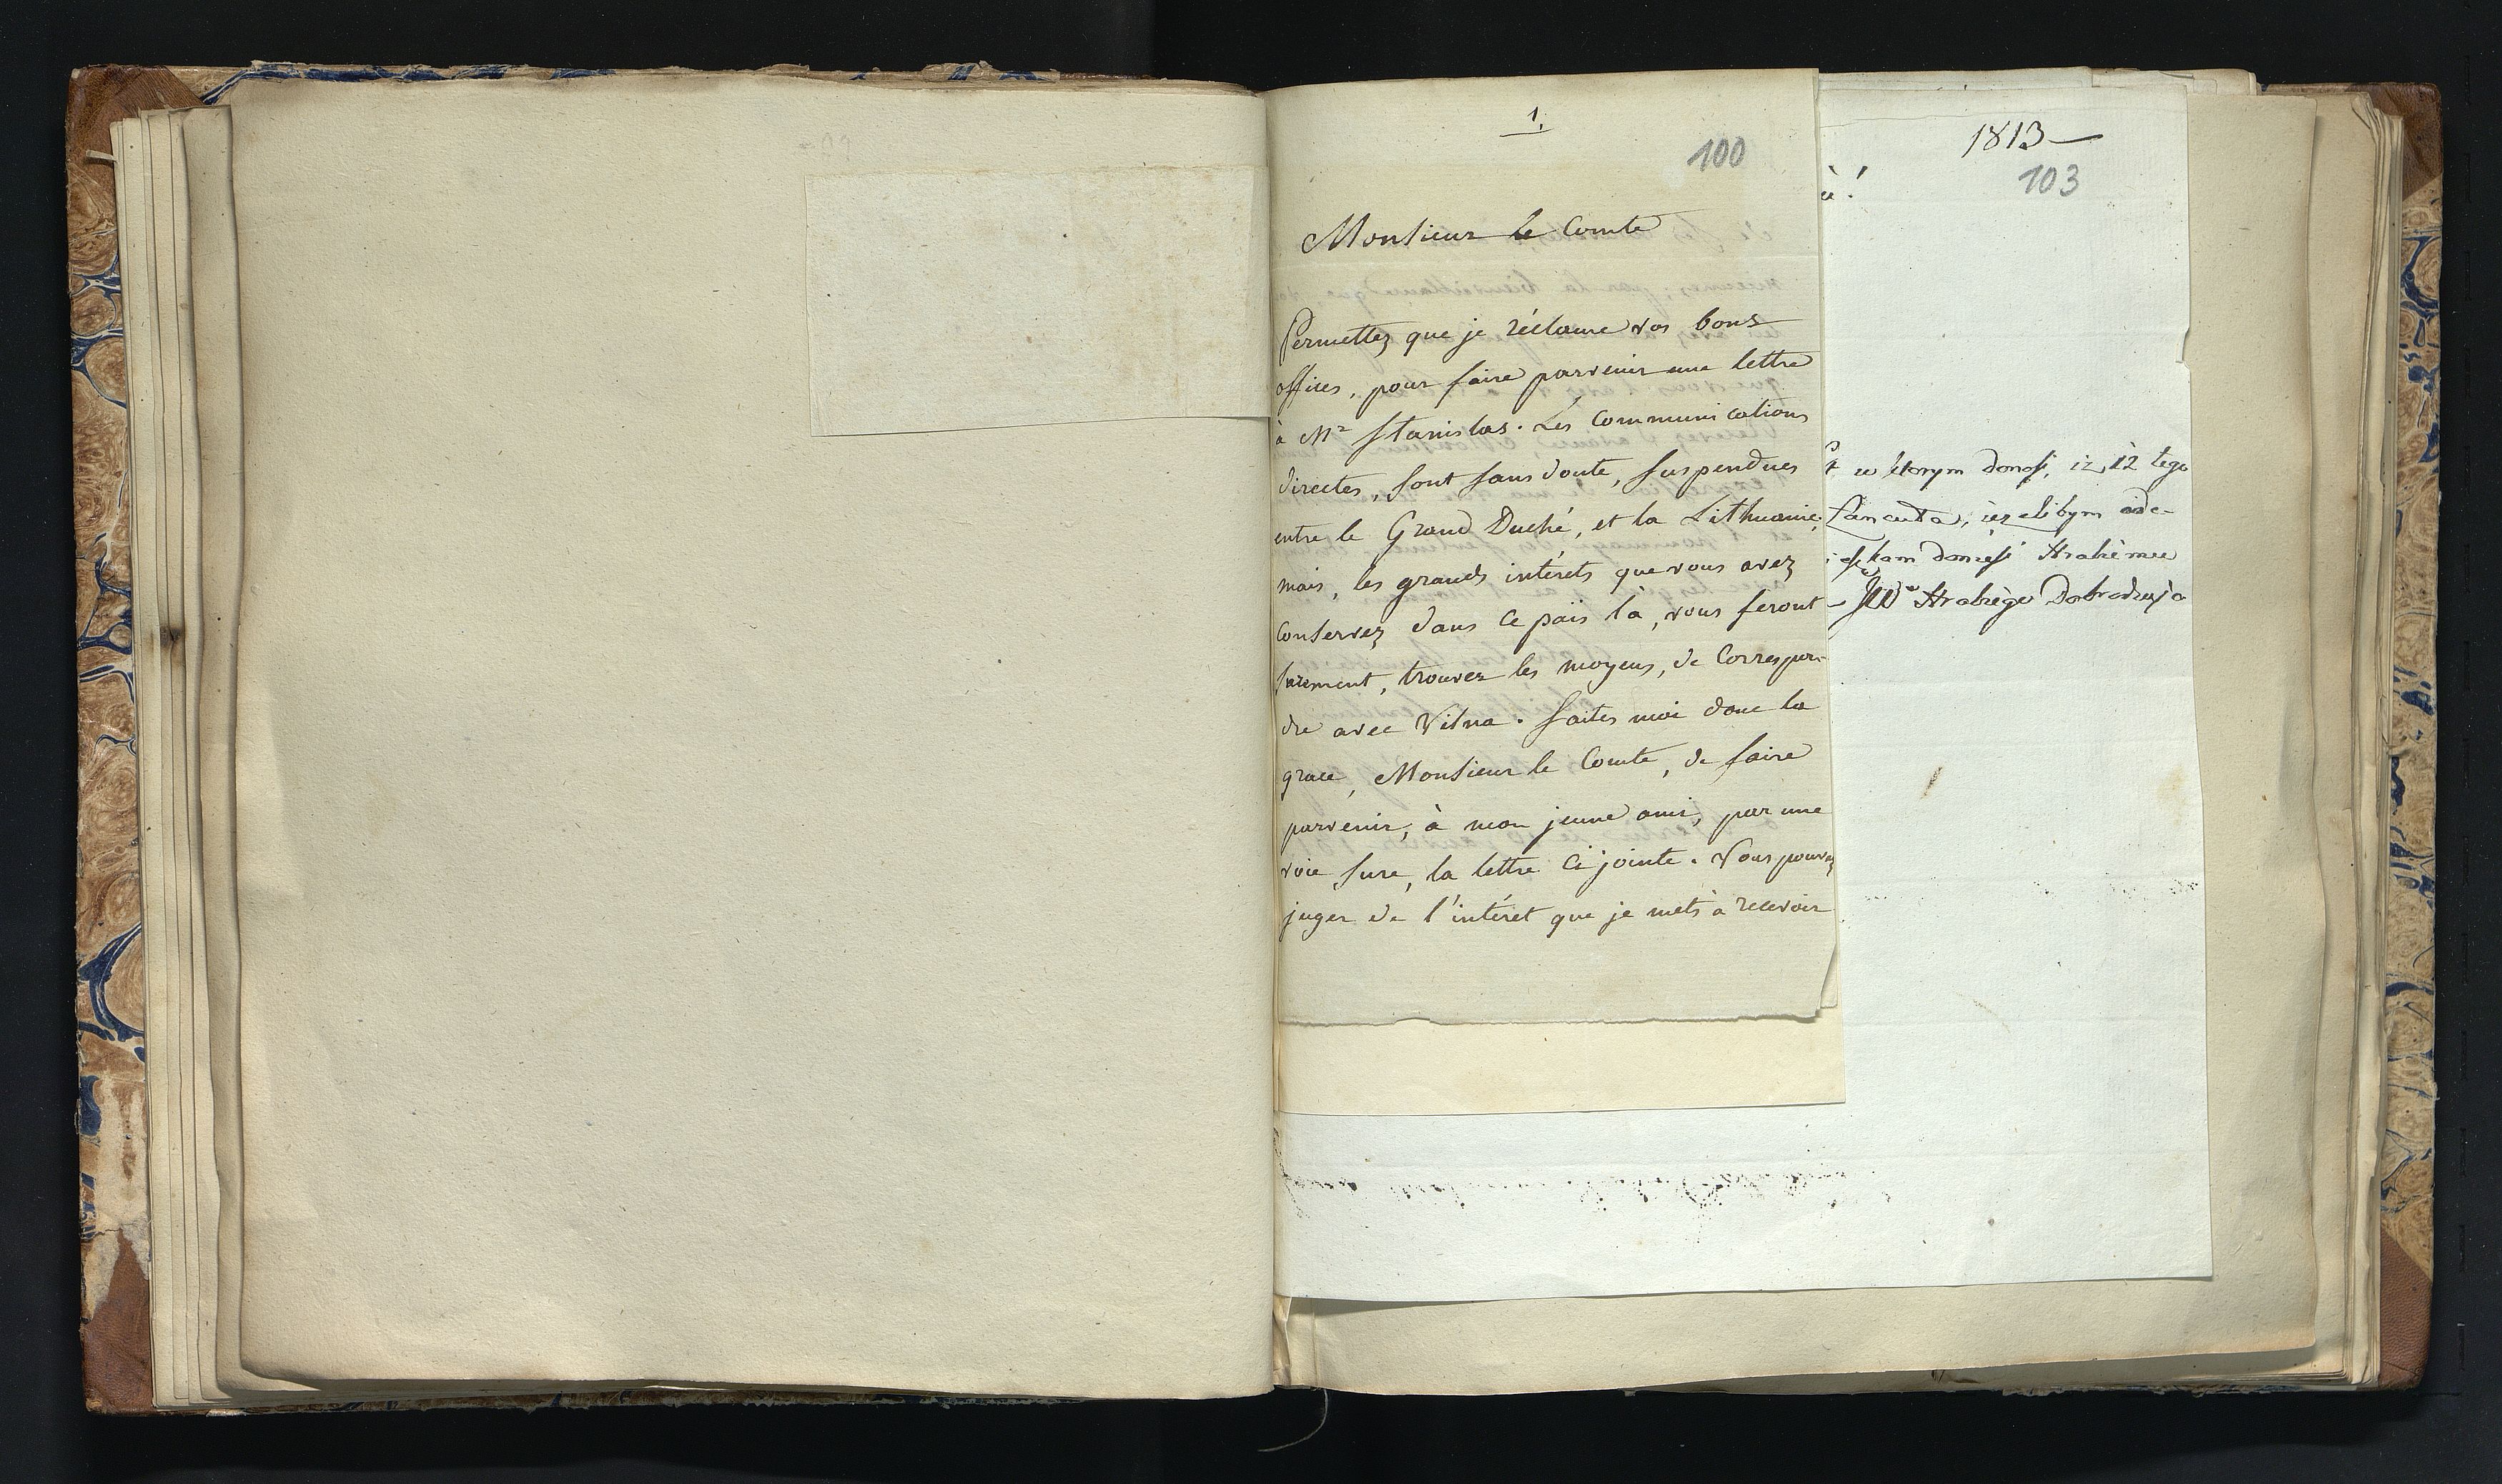 1.
100
Monsieur le Comte
Permettez que je réclame vos bons
offices, pour faire parvenir une lettre
à Mr Stanislas. Les Communications
directes, sont sans doute, suspendues
entre le Grand Duché, et la Lithuanie;
mais, les grands intérets que vous avez
conservez dans ce païs là, vous feront
surement, trouver les moyens, de Correspon-
dre avec Vilna. faites moi donc la
grace, Monsieur le Comte, de faire
parvenir, à mon jeune ami, par une
voie sure, la lettre ci jointe. Vous pouvez
juger de l'intéret que je mets à recevoir
1813—
103
a!
w ktorym donosi, iz 12 tego
Łancuta, iezelibym
tam Hrabiemu
JW Hrabiego Dobrodzieja